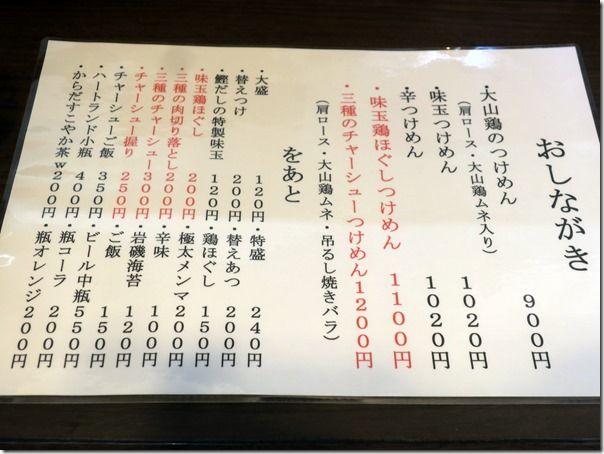 おしながき
・大山鶏のつけめん 900円
(肩ロース・大山鶏ムネ入り)
・味玉つけめん 1020円
・辛つけめん 1020円
・味玉鶏ほぐしつけめん 1100円
・三種のチャーシューつけめん 1200円
(肩ロース・大山鶏ムネ・吊るし焼きバラ)
をあと
・大盛 120円 ・特盛 240円
・替えつけ 200円 ・替えあつ 200円
・鰹だしの特製味玉 120円 ・鶏ほぐし 150円
・味玉鶏ほぐし 200円 ・極太メンマ 200円
・三種の肉切り落とし 200円 ・辛味 100円
・三種のチャーシュー 300円 ・岩磯海苔 120円
・チャーシュー握り 250円 ・ご飯 150円
・チャーシューご飯 350円 ・ビール中瓶 550円
・ハートランド小瓶 400円 ・瓶コーラ 200円
・からだすこやか茶w 200円 ・瓶オレンジ 200円